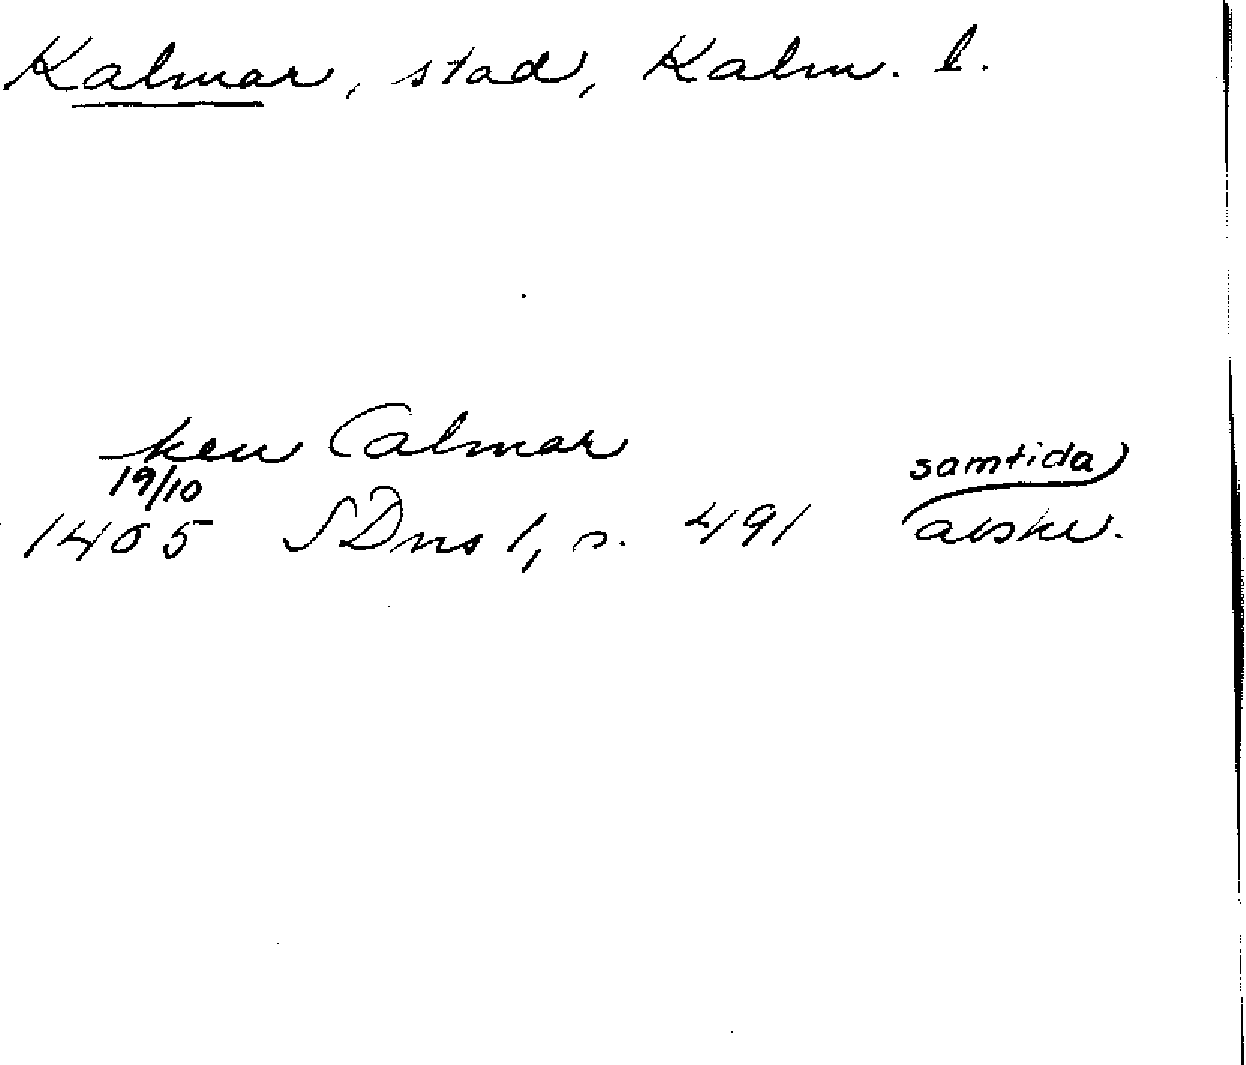 Kalmar, stad, Kalm. l.
ken Calmar
19/10 samtida
1405 SDns 1, s. 491 avskr.